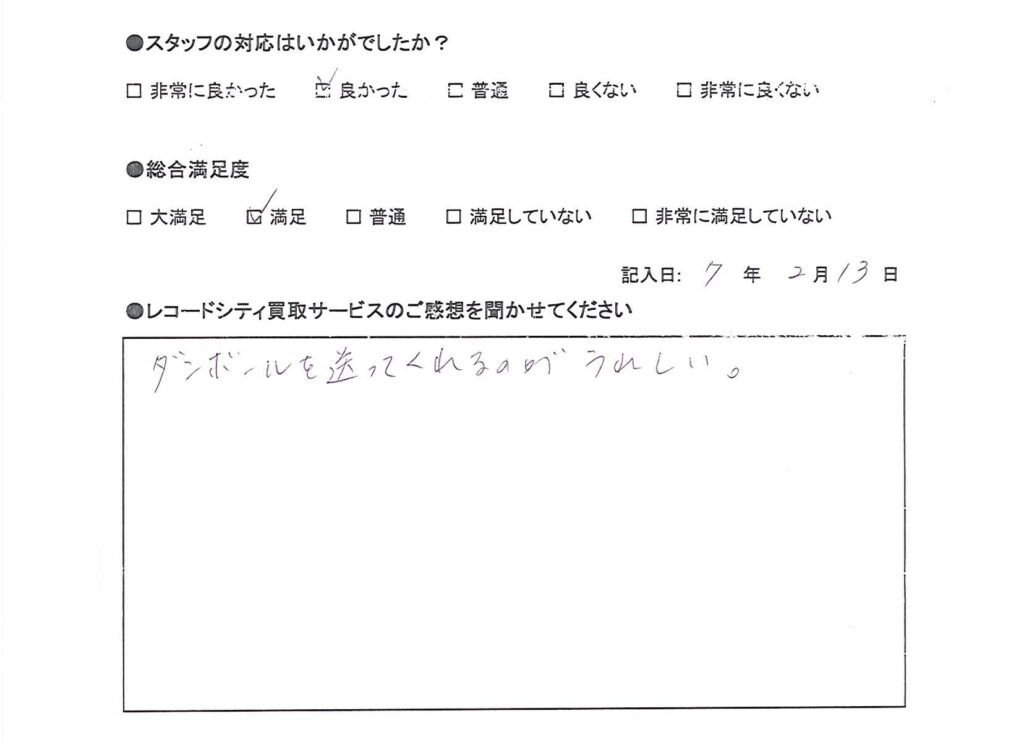 ●スタッフの対応はいかがでしたか？
□ 非常に良かった ☑ 良かった □ 普通 □ 良くない □ 非常に良くない
●総合満足度
□ 大満足 ☑ 満足 □ 普通 □ 満足していない □ 非常に満足していない
記入日: 7 年 2 月 13 日
●レコードシティ買取サービスのご感想を聞かせてください
ダンボールを送ってくれるのが うれしい。